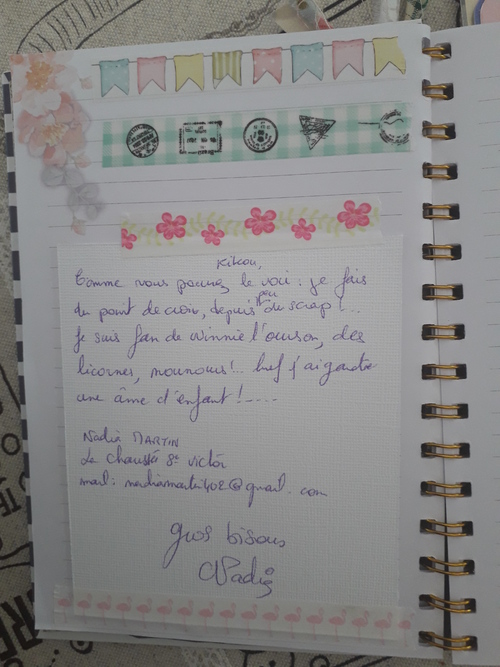 Kikou,
Comme vous pouvez le voir : je fais
du point de croix, depuis peu du scrap !...
Je suis fan de winnie l'ourson, des
licornes, nounours !.. bref j'ai gardée
une âme d'enfant !....
Nadia MARTIN
La chaussée St victor
mail: @gmail.com
gros bisous
Nadia